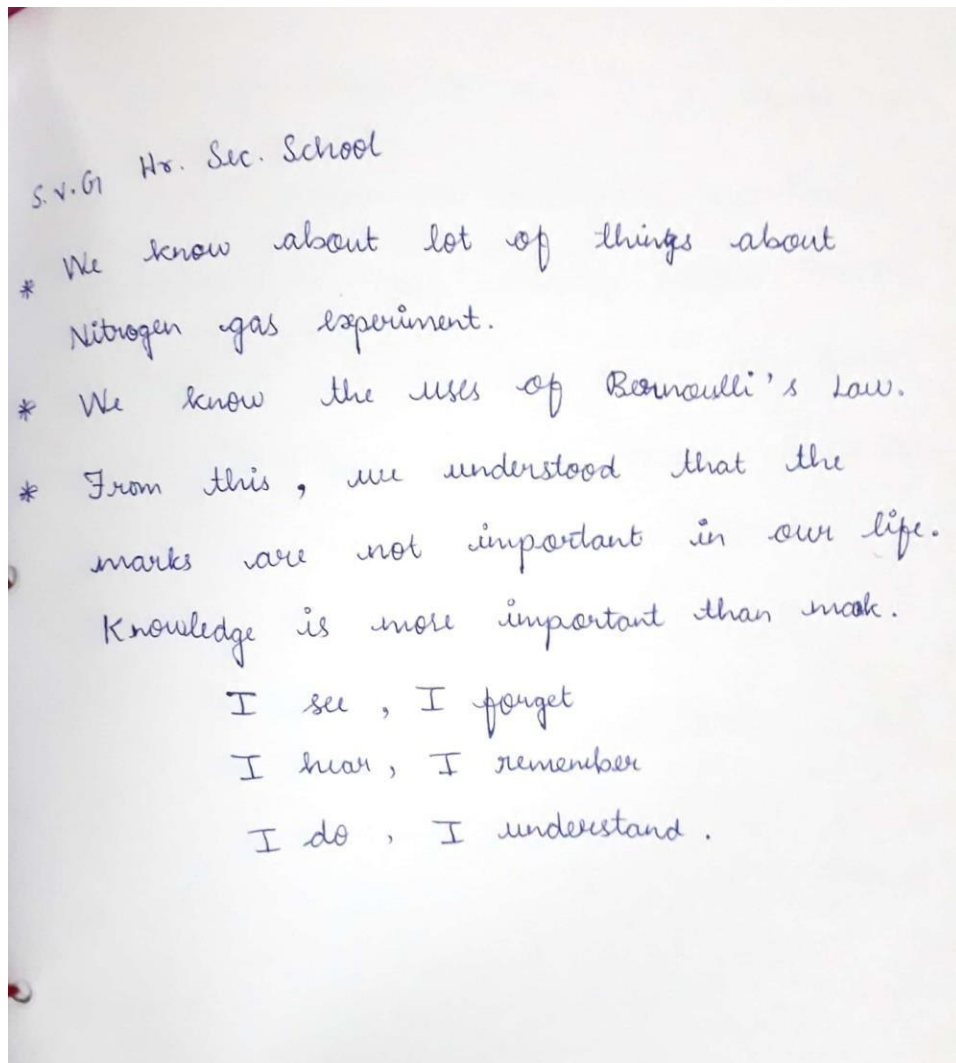 S.V.G Hr. Sec. School
* We know about lot of things about
Nitrogen gas experiment.
* We know the uses of Bernoulli's Law.
* From this, we understood that the
marks are not important in our life.
Knowledge is more important than mark.
I see, I forget
I hear, I remember
I do, I understand.